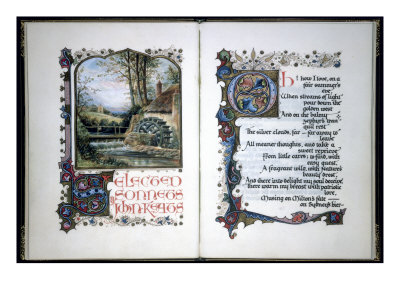 Selected
Sonnets
John Keats
Oh! how I love, on a
fair summer's
eve,
When streams of light
pour down the
golden west
And on the balmy
zephyrs tran-
quil rest
The silver clouds, far — far away to
leave
All meaner thoughts, and take a
sweet reprieve
From little cares; to find, with
easy quest,
A fragrant wild, with Nature's
beauty drest,
And there into delight my soul deceive.
There warm my breast with patriotic
lore,
Musing on Milton's fate —
on Sydney's bier —